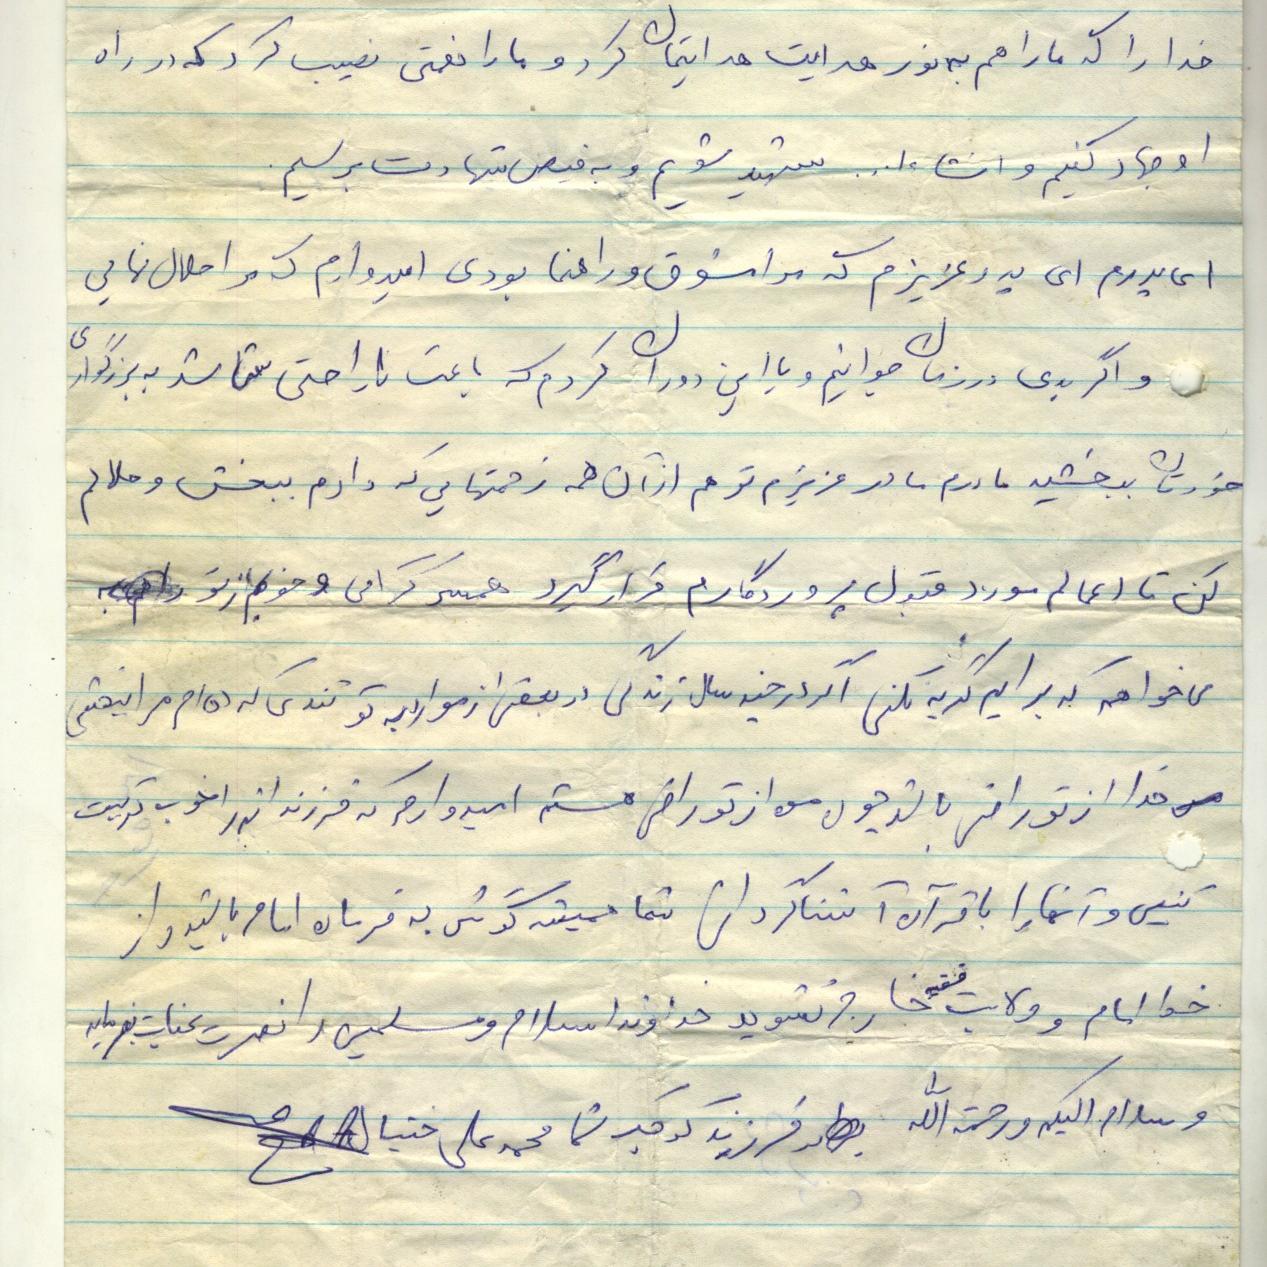 خدا را که ما را هم به نور هدایت هدایتمان کرد و ما را نعمتی نصیب کرد که در راه
او جهاد کنیم و انشاءا... شهید شویم و به فیض شهادت برسیم.
ای پدرم ای پدر عزیزم که مرا مشوق و راهنما بودی امیدوارم که مرا حلال نمایی
و اگر بدی در زمان جوانیم و یا این دوران کردم که باعث ناراحتی شما شد به بزرگواری
خودتان ببخشید مادرم مادر عزیزم تو هم از آن همه زحمتهایی که دادم ببخش و حلالم
کن تا اعمالم مورد قبول پروردگارم قرار گیرد همسر گرامی و خوبم از تو
می خواهم که برایم گریه نکنی اگر در چند سال زندگی در بعضی از موارد به تو تندی کرده ام مرا ببخشی
خدا از تو راضی باشد چون من از تو راضی هستم امیدوارم که فرزندانم را خوب تربیت
کنی و آنها را با قرآن آشنا گردانی شما همیشه گوش به فرمان امام باشید و از
خط امام و ولایت فقیه خارج نشوید خداوند اسلام و مسلمین را نصرت عنایت بفرماید
و سلام الیکم و رحمة الله فرزند کوچک شما محمد علی